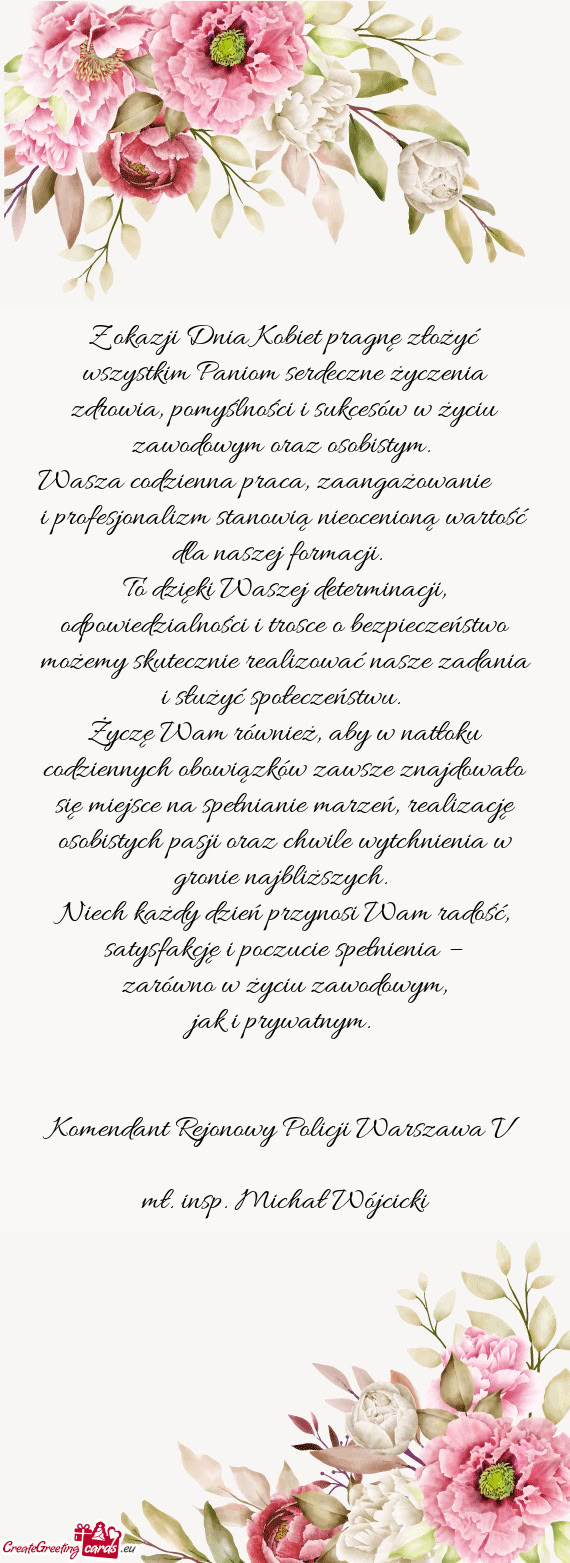 Z okazji Dnia Kobiet pragnę złożyć
wszystkim Paniom serdeczne życzenia
zdrowia, pomyślności i sukcesów w życiu
zawodowym oraz osobistym.
Wasza codzienna praca, zaangażowanie
i profesjonalizm stanowią nieocenioną wartość
dla naszej formacji.
To dzięki Waszej determinacji,
odpowiedzialności i trosce o bezpieczeństwo
możemy skutecznie realizować nasze zadania
i służyć społeczeństwu.
Życzę Wam również, aby w natłoku
codziennych obowiązków zawsze znajdowało
się miejsce na spełnianie marzeń, realizację
osobistych pasji oraz chwile wytchnienia w
gronie najbliższych.
Niech każdy dzień przynosi Wam radość,
satysfakcję i poczucie spełnienia –
zarówno w życiu zawodowym,
jak i prywatnym.
Komendant Rejonowy Policji Warszawa V
mł. insp. Michał Wójcicki
CreateGreeting cards .eu